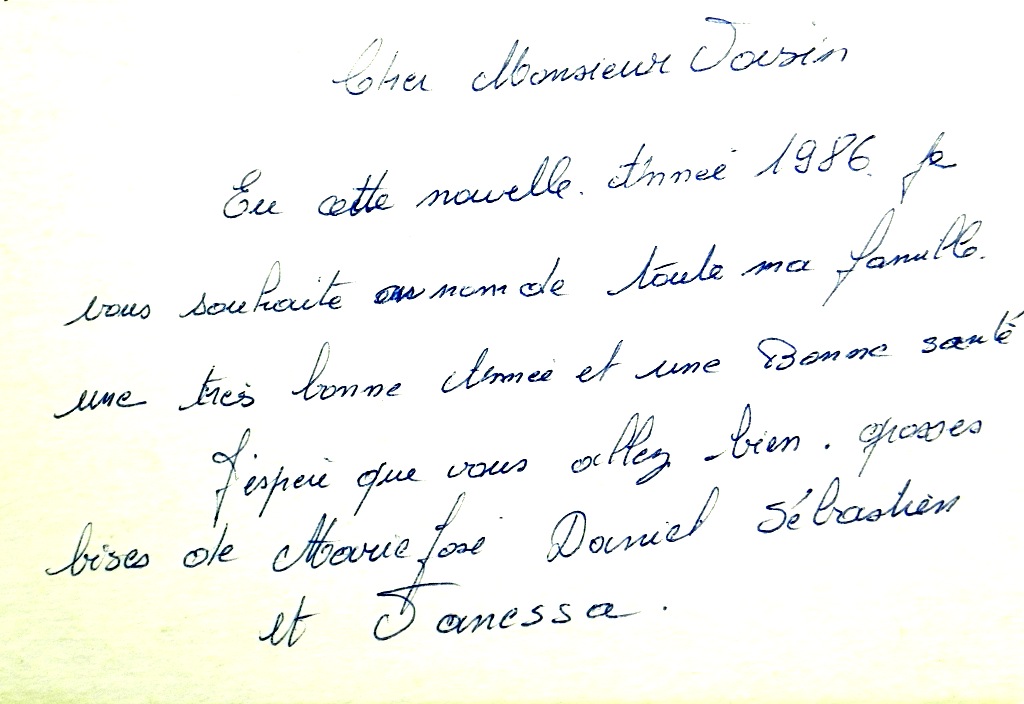 Cher Monsieur Voisin
En cette nouvelle. Année 1986. Je
vous souhaite au nom de toute ma famille.
une très bonne Année et une Bonne santé
J'espère que vous allez bien. grosses
bises de Marie José Daniel Sébastien
et Vanessa.